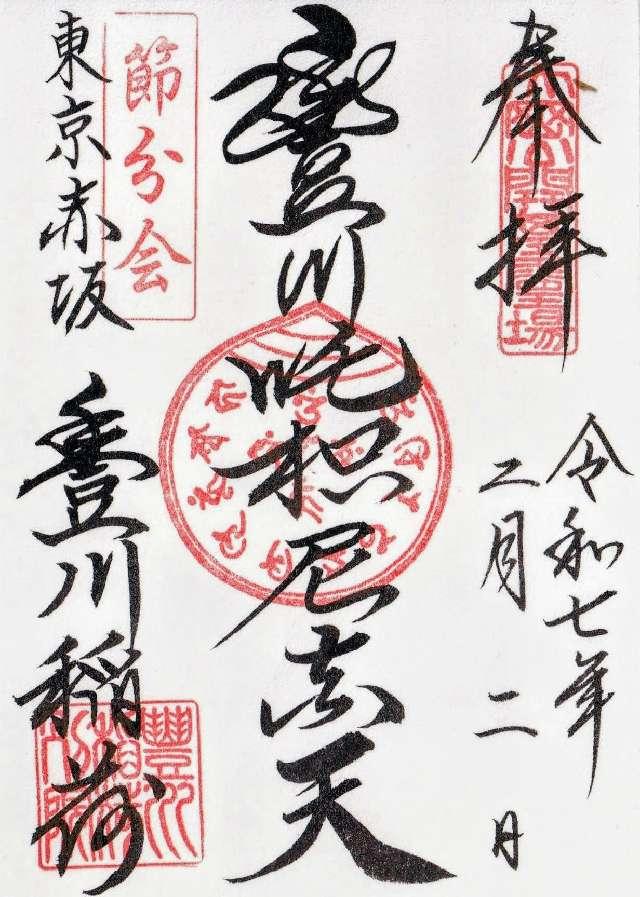 奉拝
令和七年
二月二日
豐川吒枳尼真天
節分会
東京赤坂
豊川稲荷